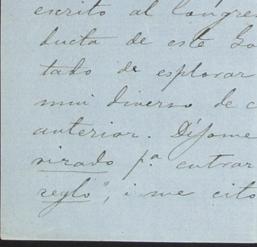 escrito al Congre
ducta de este Go
tado de esplorar
mui diverso de c
anterior. Díjome
virado pª entrar
reglo", i me cito